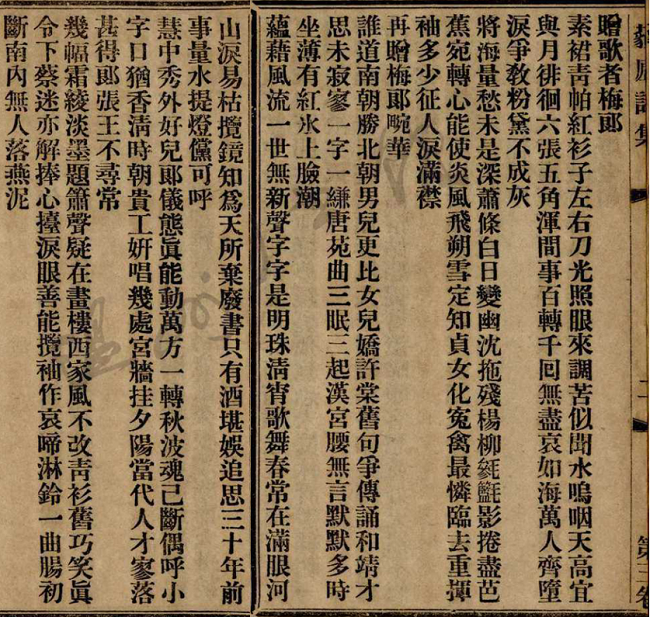 贈歌者梅郎
素裙靑帕紅衫子左右刀光照眼來調苦似聞水嗚咽天高宜
與月徘徊六張五角渾閒事百轉千回無盡哀如海萬人齊墮
淚爭敎粉黛不成灰
將海量愁未是深蕭條白日變幽沈拖殘楊柳毿毿影捲盡芭
蕉宛轉心能使炎風飛朔雪定知貞女化寃禽最憐臨去重揮
袖多少征人淚滿襟
再贈梅郎畹華
誰道南朝勝北朝男兒更比女兒嬌許棠舊句爭傳誦和靖才
思未寂寥一字一縑唐苑曲三眠三起漢宮腰無言默默多時
坐薄有紅冰上臉潮
蘊藉風流一世無新聲字字是明珠淸宵歌舞春常在滿眼河
山淚易枯攬鏡知爲天所棄廢書只有酒堪娛追思三十年前
事量水提燈儻可呼
慧中秀外好兒郎儀態眞能動萬方一轉秋波魂已斷偶呼小
字口猶香淸時朝貴工妍唱幾處宮牆挂夕陽當代人才寥落
甚得郎張王不尋常
幾幅霜綾淡墨題簫聲疑在畫樓西家風不改靑衫舊巧笑眞
令下蔡迷亦解捧心擡淚眼善能攬袖作哀啼淋鈴一曲腸初
斷南內無人落燕泥
二
第三卷